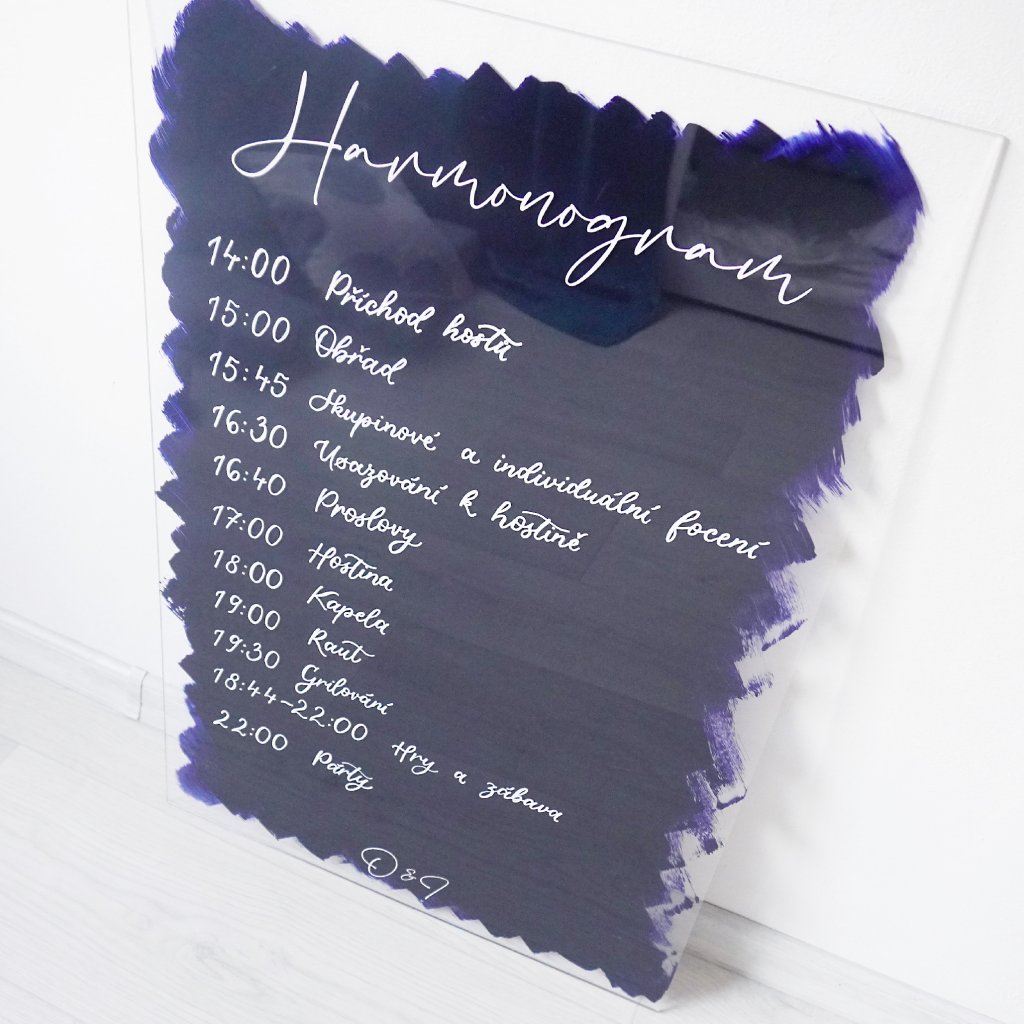 Harmonogram
14:00 Příchod hostů
15:00 Obřad
15:45 Skupinové a individuální focení
16:30 Usazování k hostině
16:40 Proslovy
17:00 Hostina
18:00 Kapela
19:00 Raut
19:30 Grilování
18:44-22:00 Hry a zábava
22:00 Párty
O & I